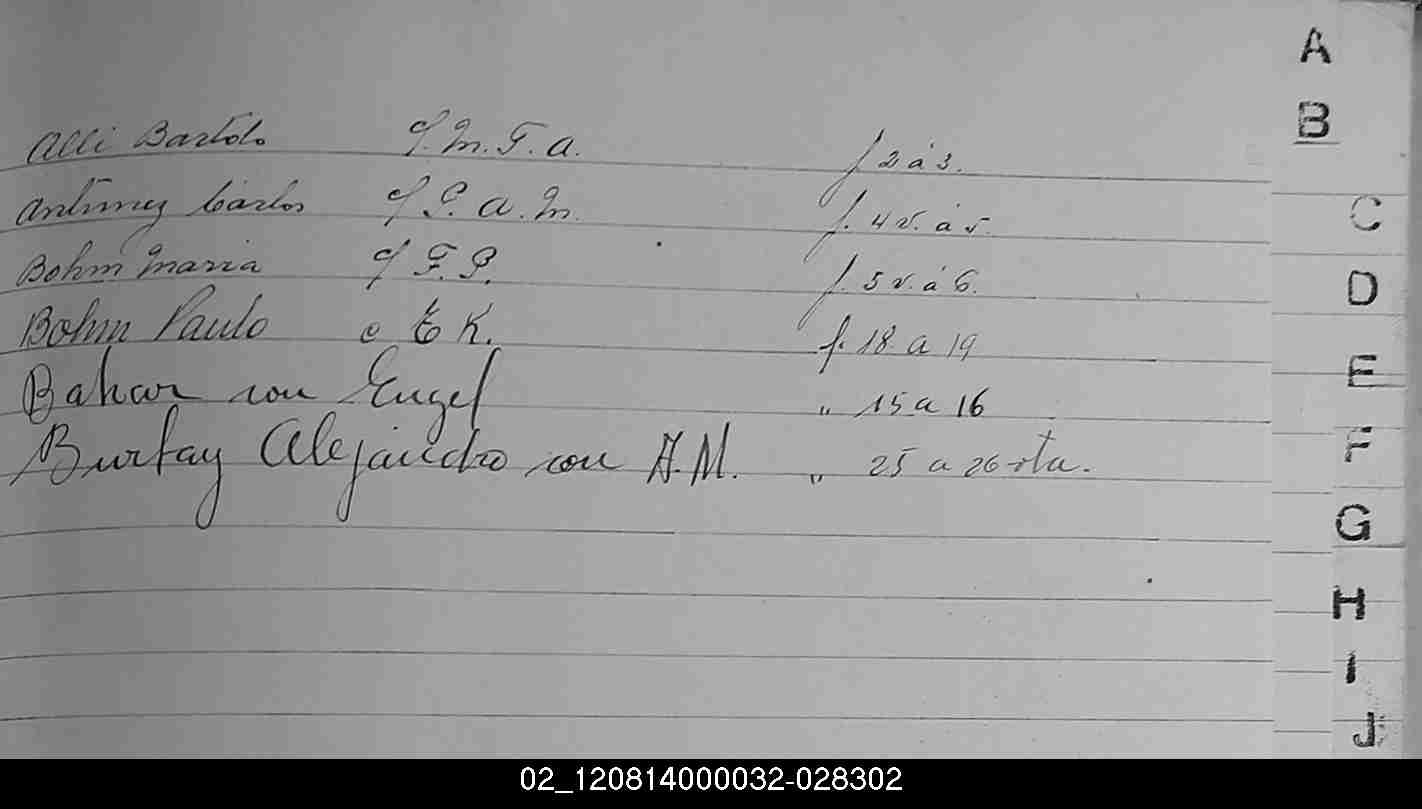 Alli Bartolo c/ M. F. A. f 2 á 3.
Antunez Carlos c/ P. A. M. f. 4 v. á 5.
Bohm Maria c/ F. P. f. 5 v. á 6.
Bohm Paulo c E K. f. 18 a 19
Bahar con Engel " 15 a 16
Burtay Alejandro con A. M. " 25 a 26 vta.
A
B
C
D
E
F
G
H
I
J
02_120814000032-028302